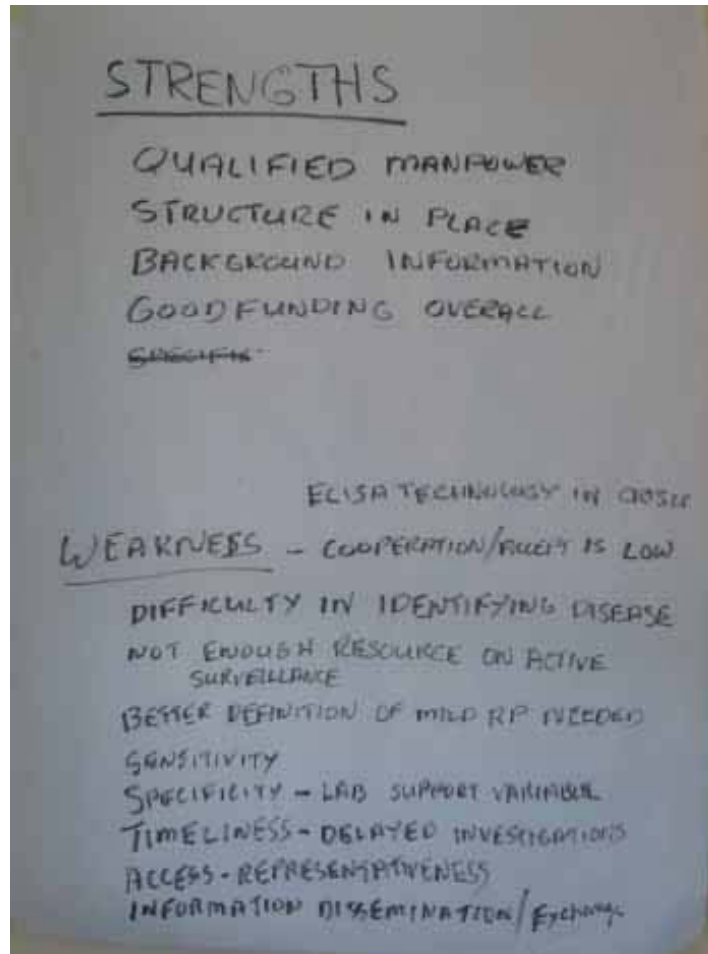 STRENGTHS
QUALIFIED MANPOWER
STRUCTURE IN PLACE
BACKGROUND INFORMATION
GOOD FUNDING OVERALL
ELISA TECHNOLOGY IN
WEAKNESS - COOPERATION/ IS LOW
DIFFICULTY IN IDENTIFYING DISEASE
NOT ENOUGH RESOURCE ON ACTIVE
SURVEILLANCE
BETTER DEFINITION OF MILD RP NEEDED
SENSITIVITY
SPECIFICITY - LAB SUPPORT VARIABLE
TIMELINESS - DELAYED INVESTIGATIONS
ACCESS - REPRESENTATIVENESS
INFORMATION DISSEMINATION/Exchange